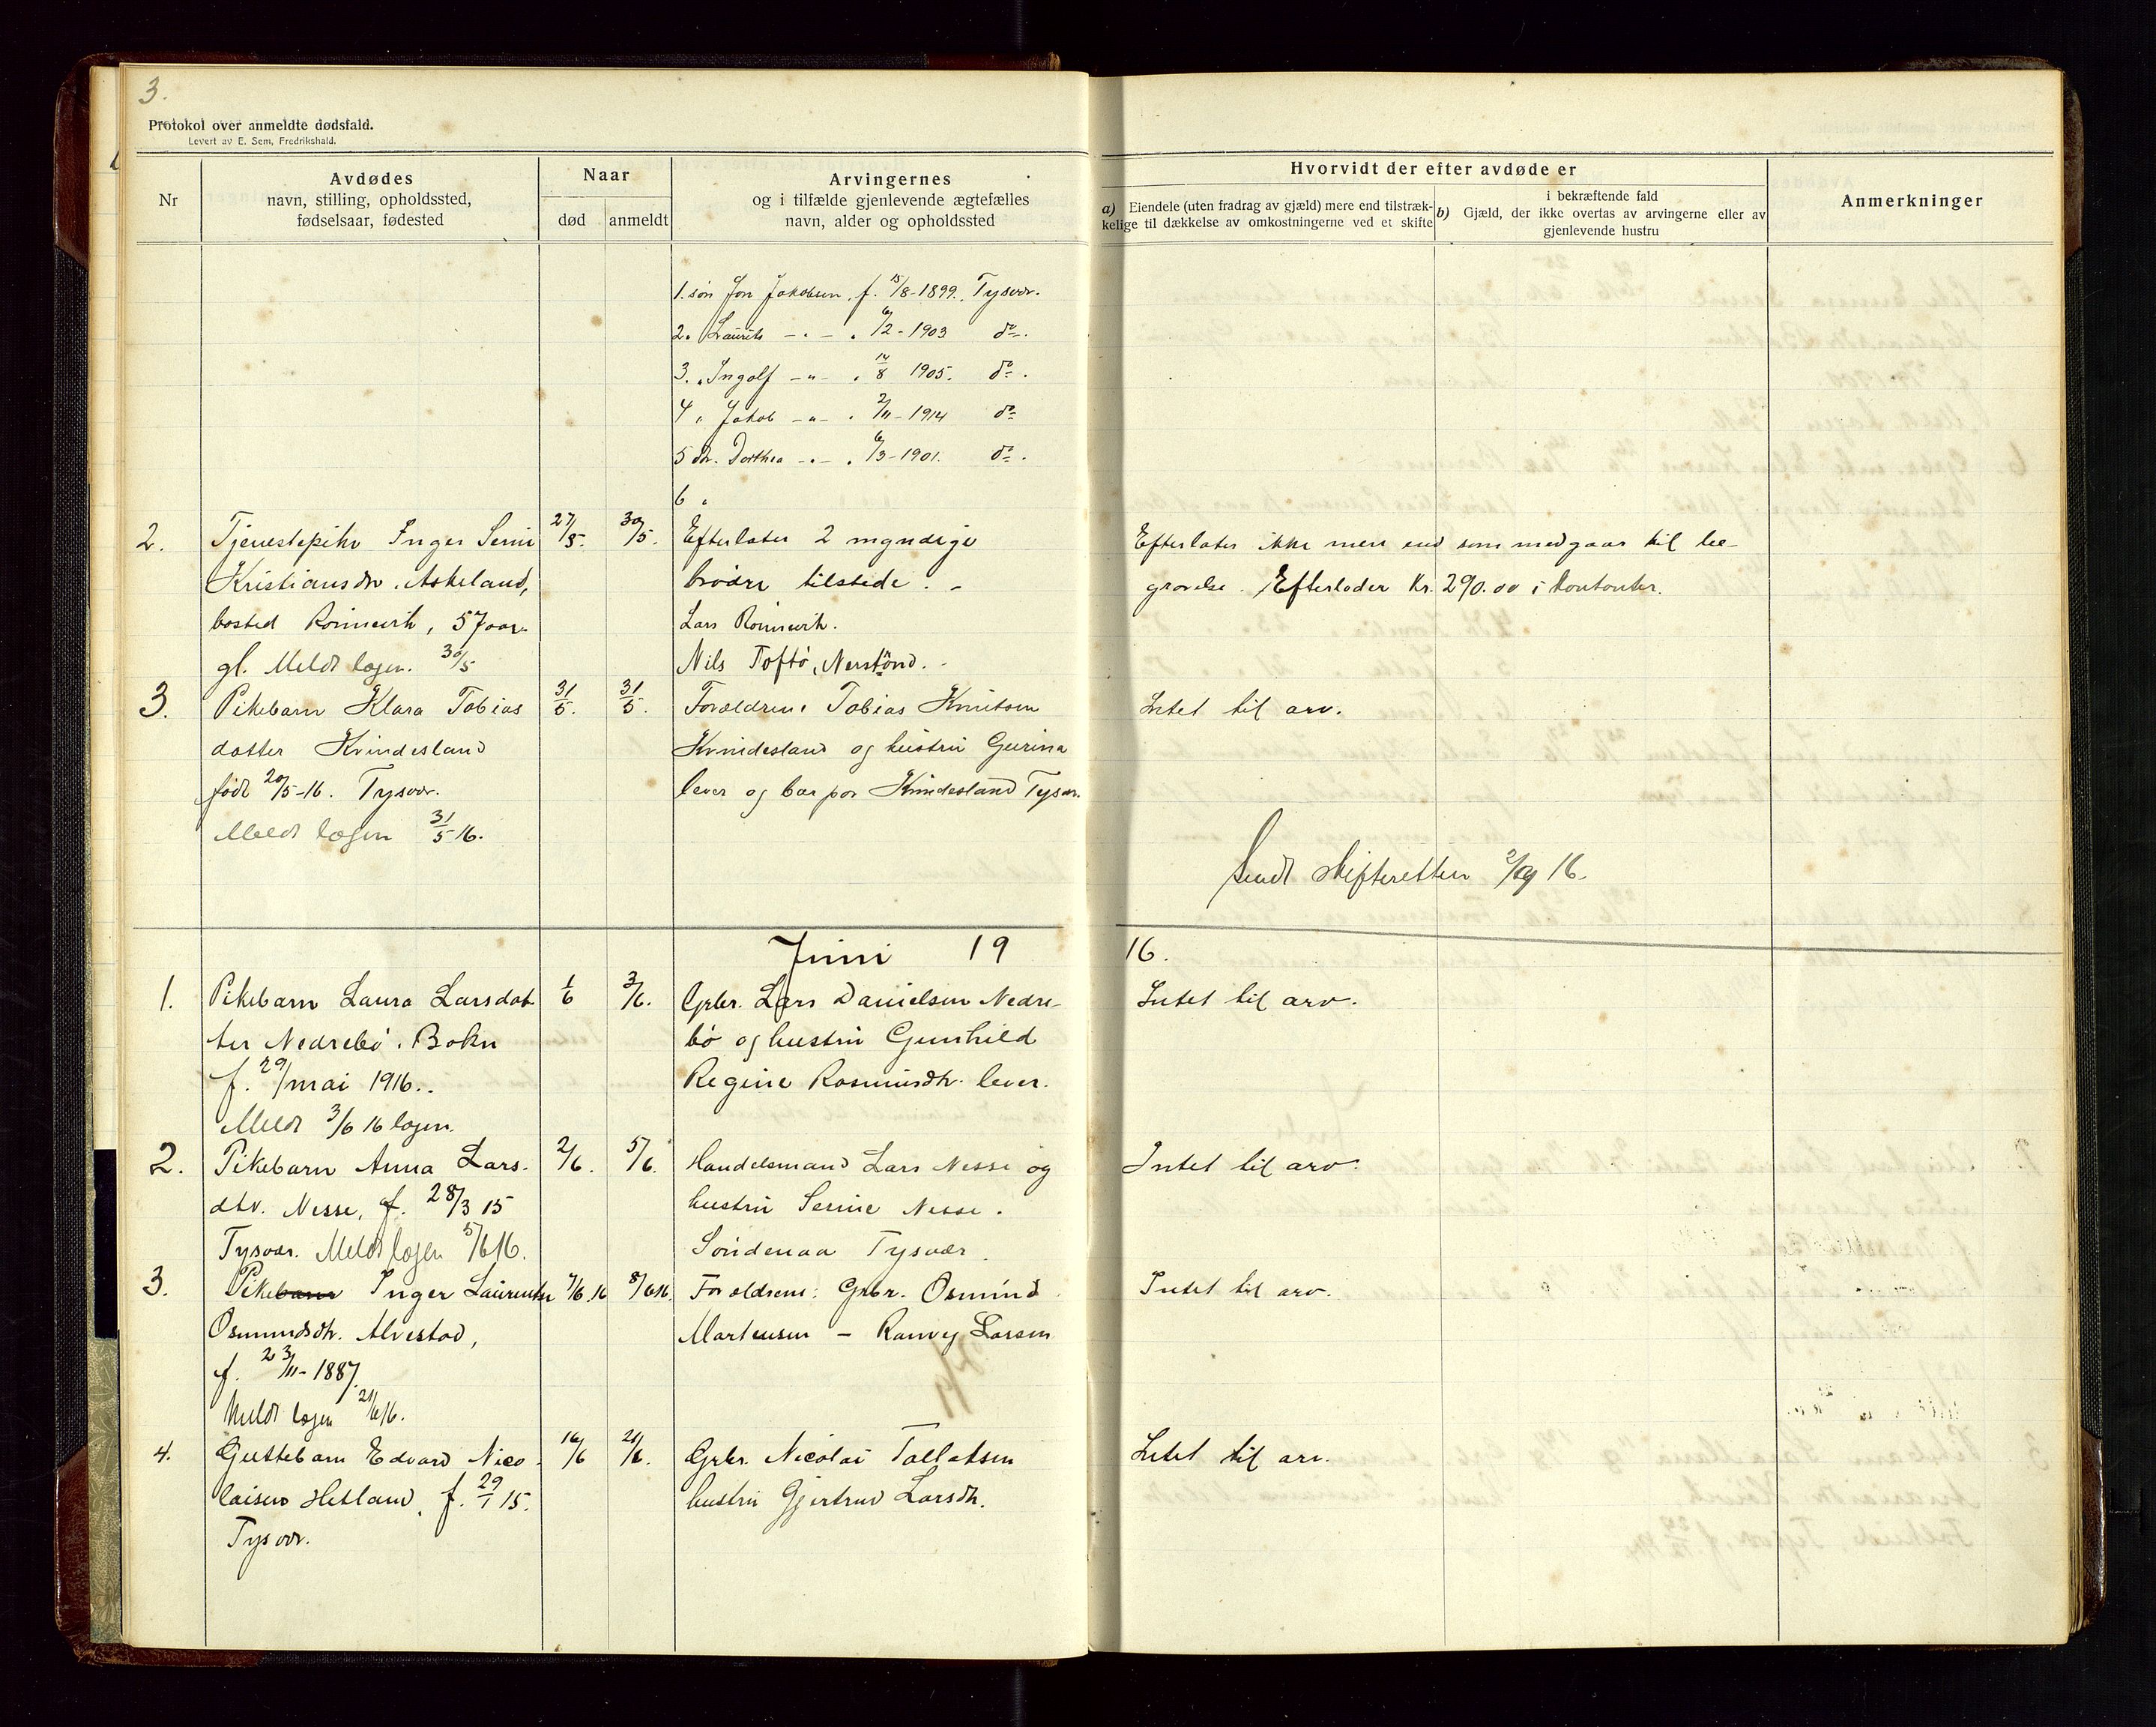 3.
Protokol over anmeldte dødsfald.
Levert av E. Sem, Fredrikshald.
Nr
Avdødes
navn, stilling, opholdssted,
fødselsaar, fødested
Naar
død
anmeldt
Arvingernes
og i tilfælde gjenlevende ægtefælles
navn, alder og opholdssted
Hvorvidt der efter avdøde er
a) Eiendele (uten fradrag av gjæld) mere end tilstræk-
kelige til dækkelse av omkostningerne ved et skifte
i bekræftende fald
b) Gjæld, der ikke overtas av arvingerne eller av
gjenlevende hustru
Anmerkninger
1. søn Jon Jakobsen, f. 15/8-1899. Tysvær.
2. Laurits -"- " 6/2-1903 do.
3. " Ingolf -"- " 14/8 1905. do.
4 " Jakob -"- " 2/11-1914 do
5 dtr. Dorthea -"- " 6/3-1901. do.
6 "
2. Tjenestepike Inger Serine 27/5. 30/5. Efterlater 2 myndige Efterlater ikke mere end som medgaar til be-
Kristiansdtr. Askeland, brødre tilstede. - gravelse. Efterlader Kr. 290.00 i kontanter.
bosted Rønnevik, 57 aar Lars Rønnevik.
gl. Meldt lægen. 30/5 Nils Toftø, Nerstrand.
3. Pikebarn Klara Tobias 31/5. 31/5. Forældrene Tobias Knutsen Intet til arv.
datter Kvindesland Kvindesland og hustru Gurina
født 20/5-16. Tysvær. lever og bor paa Kvindesland Tysvær.
Meldt lægen 31/5 16.
Sendt skifteretten 16.
Juni 1916.
1. Pikebarn Laura Larsdat 1/6 3/6. Grbr. Lars Danielsen Nedre- Intet til arv.
ter Nedrebø. Bokn bø og hustru Gunhild
f. 29/mai 1916.. Regine Rasmusdtr. lever.
Meldt 3/6 16 lægen.
2. Pikebarn Anna Lars- 2/6. 5/6. Handelsmand Lars Nesse og Intet til arv.
dtr. Nesse, f. 28/3 15 hustru Serine Nesse.
Tysvær. Meldt lægen 5/6 16. Söndenaa Tysvær.
3. Pikebarn Inger Laurentse 7/6.16 8/6 16. Forældrene: Grbr. Osmund Intet til arv.
Osmundsdtr. Alvestad, Martensen - Ranvey Larsen
f. 23/11-1887.
Meldt lægen 21/6 16.
4. Guttebarn Edvard Nico- 16/6 21/6. Grbr. Nicolai Tallaksen Intet til arv.
laisen Hetland, f. 29/1 15. hustru Gjertrud Larsdtr.
Tysvær.